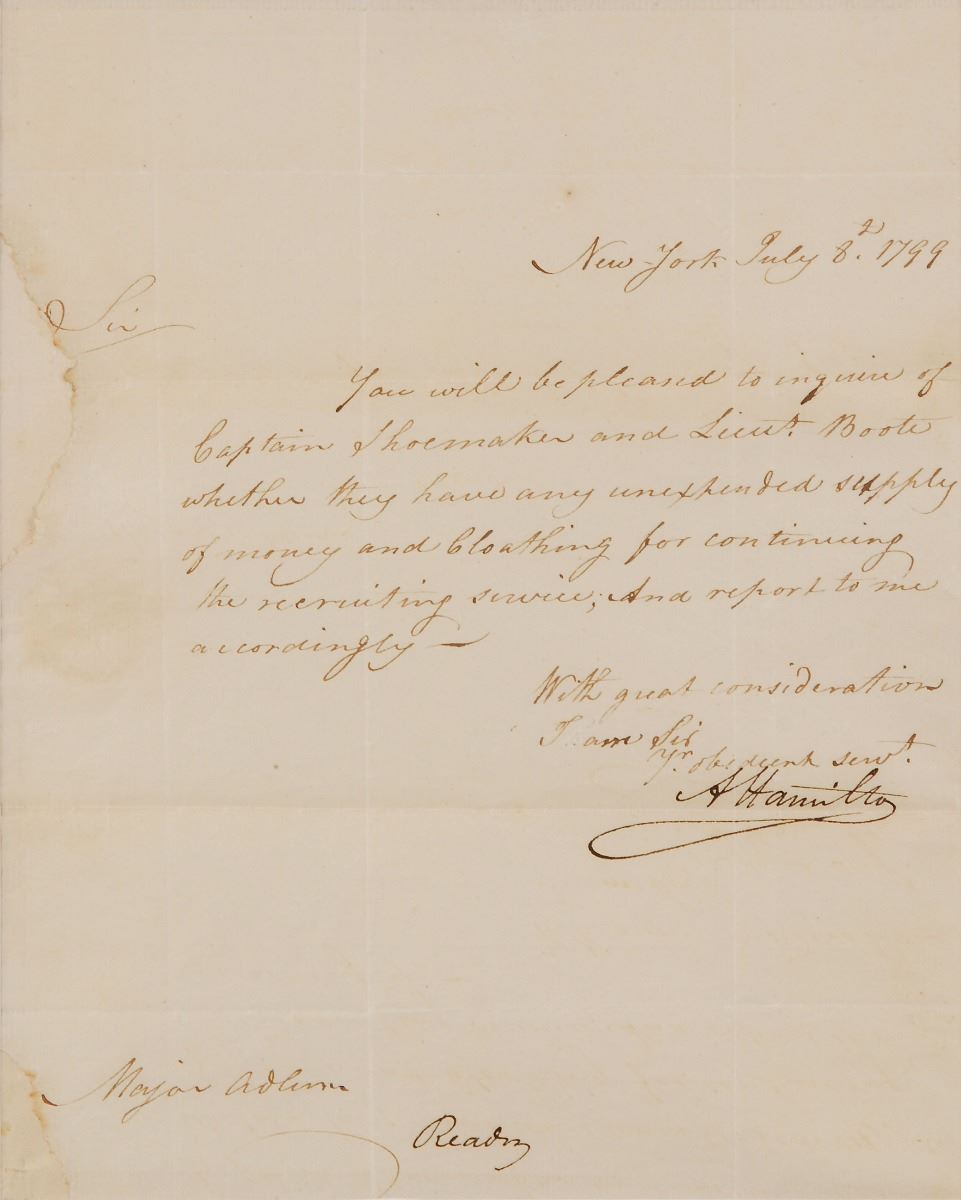 New York July 8.d 1799
Sir
You will be pleased to inquire of
Captain Shoemaker and Lieut. Boote
whether they have any unexpended supply
of money and Cloathing for continuing
the recruiting service; And report to me
accordingly —
With great consideration
I am Sir
Yr. obedient servt.
A Hamilton
Major Adlum
Reading